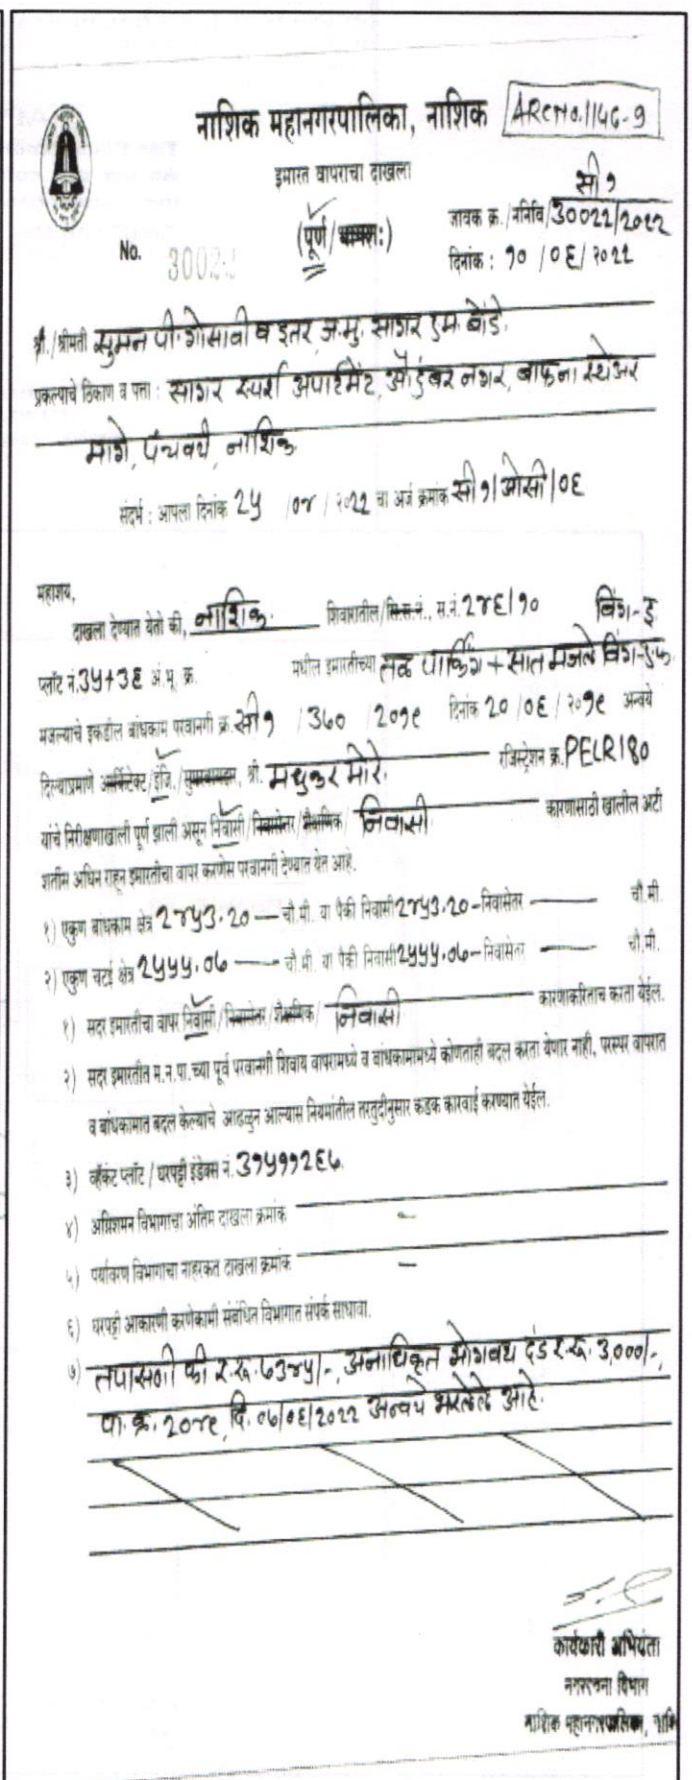 नाशिक महानगरपालिका, नाशिक ARC No. 1146-9
इमारत वापराचा दाखला
सी१
(पूर्ण/भागश:) जावक क्र./ननिवि/30022/२०२२
No. 3002 दिनांक : १० /०६/२०२२
श्री./श्रीमती सुमन पी. गोसावी व इतर, ज.मु. सागर एम. बोंडे.
प्रकल्पाचे ठिकाण व पत्ता : सागर स्पर्श अपार्टमेंट, औदुंबर नगर, बाफना
मागे, पंचवटी, नाशिक.
संदर्भ : आपला दिनांक 2५ /०४ / २०२२ चा अर्ज क्रमांक सी १/ओसी/०६
महाशय,
दाखला देण्यात येतो की, नाशिक. शिवारातील/सि.स.नं., स.नं. 2४६/१० विंग-ई
प्लॉट नं.3५+3६ अं.भू. क्र. मधील इमारतीच्या तळ पार्किंग + सात मजले विंग-एफ
मजल्याचे इकडील बांधकाम परवानगी क्र. सी१ /3६० /२०१९ दिनांक 20 /०६ /२०१९ अन्वये
दिल्याप्रमाणे आर्किटेक्ट/इंजि./सुपरवायझर, श्री. मधुकर मोरे. रजिस्ट्रेशन क्र. PELR180
यांचे निरीक्षणाखाली पूर्ण झाली असून निवासी/निवासेतर/शैक्षणिक/ निवासी कारणासाठी खालील अटी
शर्तीस अधिन राहून इमारतीचा वापर करणेस परवानगी देण्यात येत आहे.
१) एकुण बांधकाम क्षेत्र 2४५3.20 — चौ.मी. या पैकी निवासी 2४५3.20 - निवासेतर — चौ.मी.
२) एकुण चटई क्षेत्र 2५५५.०७ — चौ.मी. या पैकी निवासी 2५५५.०७ - निवासेतर — चौ.मी.
१) सदर इमारतीचा वापर निवासी/निवासेतर/शैक्षणिक/ निवासी कारणाकरिताच करता येईल.
२) सदर इमारतीत म.न.पा.च्या पूर्व परवानगी शिवाय वापरामध्ये व बांधकामामध्ये कोणताही बदल करता येणार नाही, परस्पर वापरात
व बांधकामात बदल केल्याचे आढळुन आल्यास नियमांतील तरतुदीनुसार कडक कारवाई करण्यात येईल.
३) व्हॅकंट प्लॉट / घरपट्टी इंडेक्स नं. 3१५११2६७.
४) अग्निशमन विभागाचा अंतिम दाखला क्रमांक -
५) पर्यावरण विभागाचा नाहरकत दाखला क्रमांक —
६) घरपट्टी आकारणी करणेकामी संबंधित विभागात संपर्क साधावा.
७) तपासणी फी र.रू. ७3४५/-, अनाधिकृत भोगवटा दंड र.रू. 3,०००/-,
पा. क्र. २०४९, दि. ०७/०६/2022 अन्वये भरलेले आहे.
कार्यकारी अभियंता
नगररचना विभाग
नाशिक महानगरपालिका,